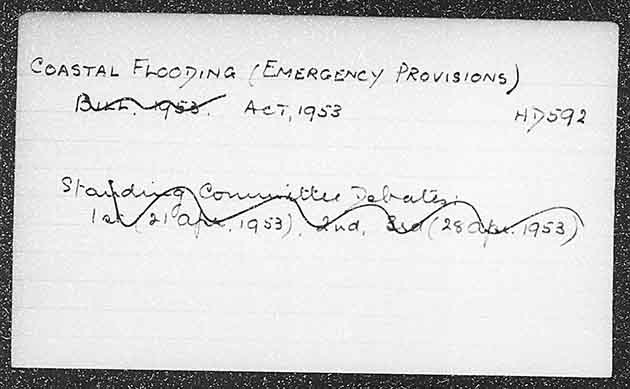 COASTAL FLOODING (EMERGENCY PROVISIONS)
BILL. 1953. ACT, 1953 HD592
Standing Committee Debates:
1st (21 Apr. 1953), 2nd, 3rd (28 Apr. 1953)